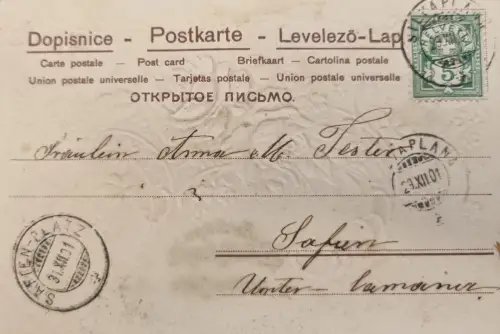 Dopisnice - Postkarte - Levelező-Lap
Carte postale — Post card Briefkaart — Cartolina postale
Union postale universelle — Tarjetas postale — Union postale universelle
ОТКРЫТОЕ ПИСЬМО.
5
Fräulein Anna M. Tester
VAPLANA
29.XII.01
Safien
SAFIEN-PLATZ
31.XII.01
Unter-Camana